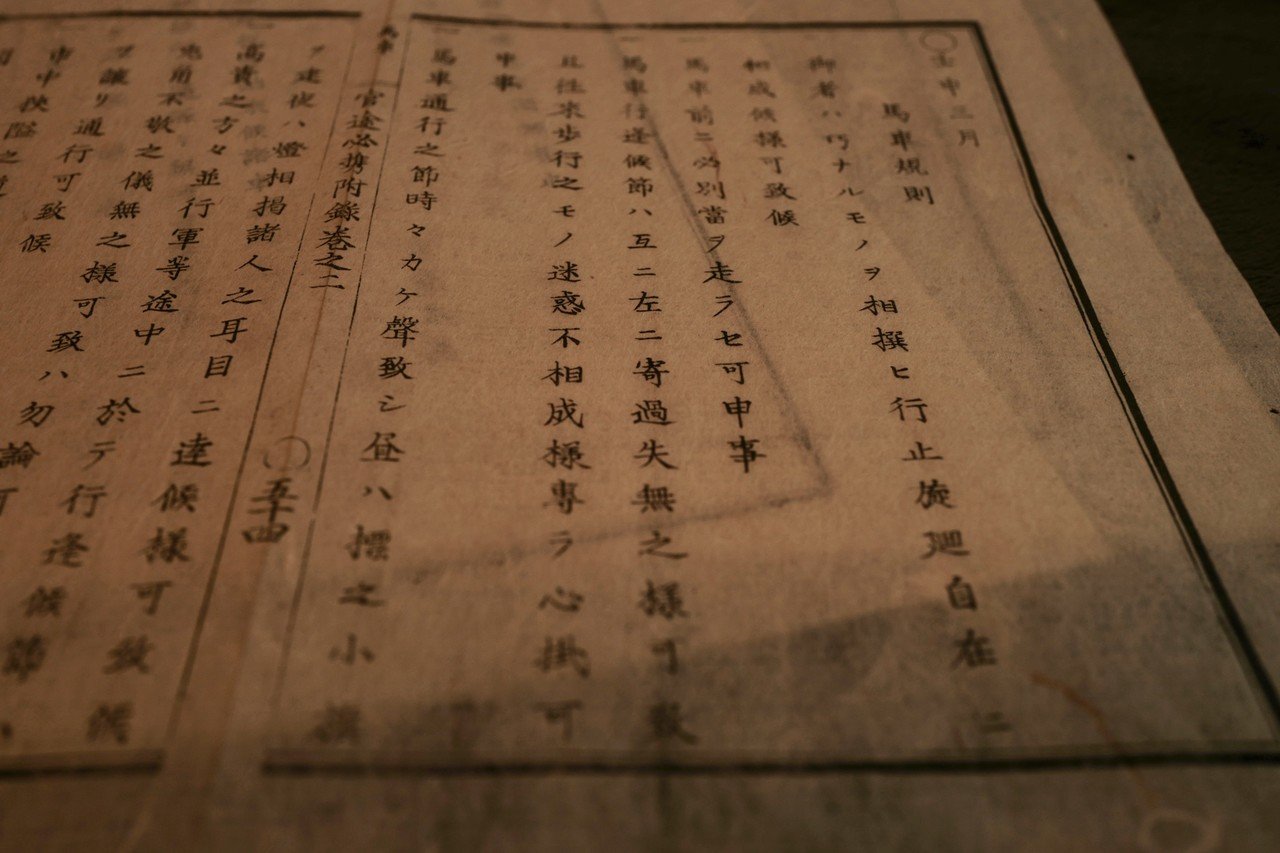 〇壬申三月
馬車規則
一御者ハ巧ナルモノヲ相撰ヒ行止旋廻自在ニ
相成候様可致候
一馬車前ニ必別當ヲ走ラセ可申事
一馬車行逢候節ハ互ニ左ニ寄過失無之様可致
且往来歩行之モノ迷惑不相成様専ラ心掛可
申事
一馬車通行之節時々カケ聲致シ昼ハ摺之小旗
馬車 官途必携附錄巻之二 〇五十四
ヲ建夜ハ燈相掲諸人之耳目ニ達候様可致候
一高貴之方々並行軍等途中ニ於テ行逢候節ハ
先角不敬之儀無之様可致ハ勿論可
ヲ讓リ通行可致候
市中狭隘之